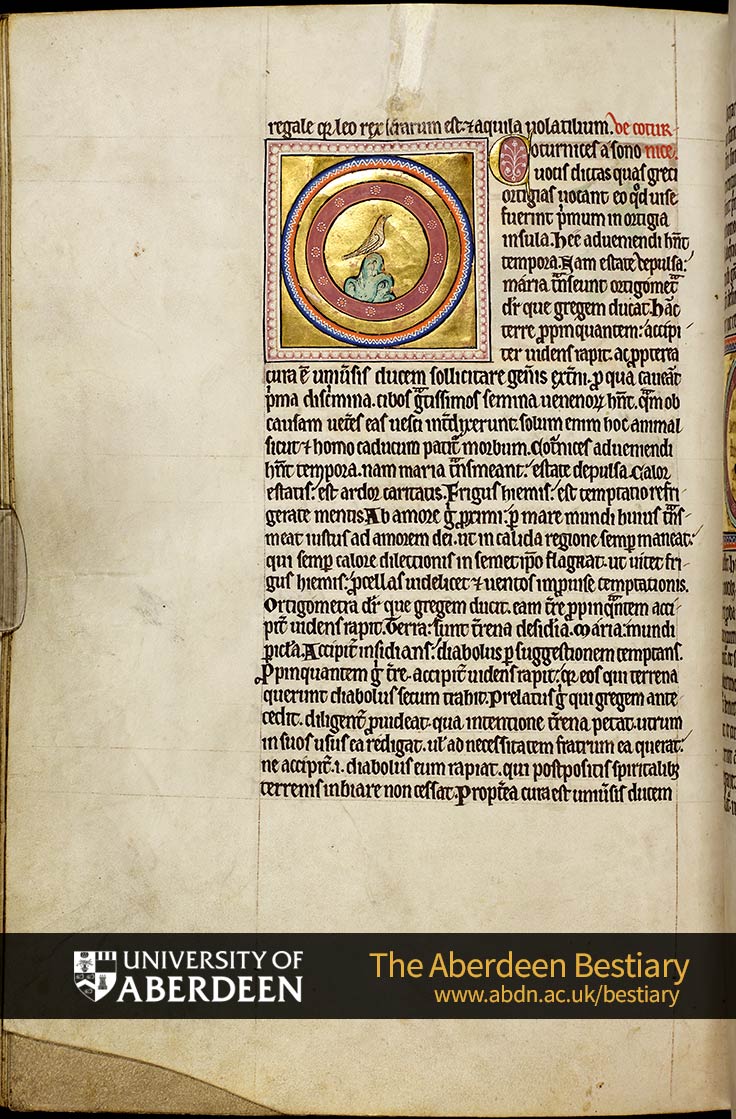 regale qr leo rex ferarum est. ⁊ aquila uolatilium. De cotur-
Coturnices a sono nice.
uocis dictas quas greci
ortigias uocant eo qd uise
fuerint pmum in ortigia
insula. hee aduemendi hnt
tempora. Nam estate depulsa:
maria tnseunt ortigomet
dr que gregem ducat. hac
terre ppinquantem: accipi
ter uidens rapit. ac ppterea
cura e uniusis ducem sollicitare genis extni. p qua caueat
pma discmina. cibos gtissimos semina uenenor hnt. qm ob
causam uetes eas uesci intdixerunt. solum enim hoc animal
sicut ⁊ homo caducum patit morbum. Cotnices aduemendi
hnt tempora. nam maria tnsmeant: estate depulsa. Calor
estatis: est ardor caritatis. Frigus hiemis: est temptatio refri-
gerate mentis. Ab amore g pximi: p mare mundi huius tns-
meat iustus ad amorem dei. ut in calida regione semp maneat:
qui semp calore dilectionis in semet ipo flagrat. ut uitet fri-
gus hiemis: pcellas uidelicet ⁊ uentos impuise temptationis.
Ortigometra dr que gregem ducit. eam tre ppinqntem acci-
pit uidens rapit. Terra: sunt trena desidia. Maria: mundi
picla. Accipit insidians: diabolus p suggestionem temptans.
Ppinquantem g tre. accipit uidens rapit: qr eos qui terrena
querunt diabolus secum trahit. Prelatus g qui gregem ante
cedit. diligent puideat. qua intentione trena petat. utrum
in suos usus ea redigat. ul ad necessitatem fratrum ea querat:
ne accipit .i. diabolus eum rapiat. qui postpositis spiritalib
terrenis inhiare non cessat. Proptea cura est umusis ducem
UNIVERSITY OF
ABERDEEN
The Aberdeen Bestiary
www.abdn.ac.uk/bestiary